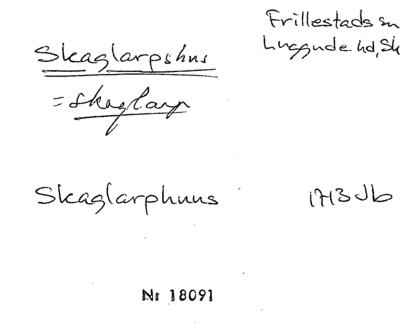 Skaglarpshus
Frillestads sn
Luggude hd, Sk
= Skaglarp
Skaglarphuus 1713 Jb
Nr 18091